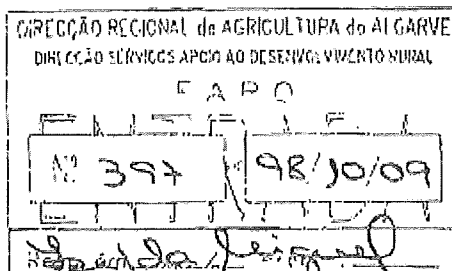 DIRECÇÃO REGIONAL de AGRICULTURA do ALGARVE
DIRECÇÃO SERVIÇOS APOIO AO DESENVOLVIMENTO RURAL
FARO
Nº 397 98/10/09